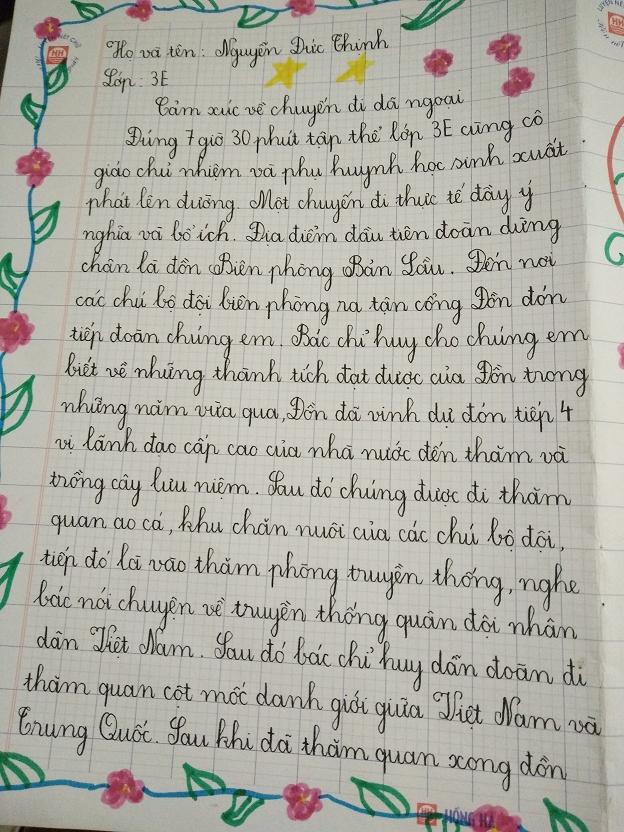 Họ và tên: Nguyễn Đức Thịnh
Lớp: 3E
Cảm xúc về chuyến đi dã ngoại
Đúng 7 giờ 30 phút tập thể lớp 3E cùng cô
giáo chủ nhiệm và phụ huynh học sinh xuất
phát lên đường. Một chuyến đi thực tế đầy ý
nghĩa và bổ ích. Địa điểm đầu tiên đoàn dừng
chân là đồn Biên phòng Bản Lầu. Đến nơi
các chú bộ đội biên phòng ra tận cổng Đồn đón
tiếp đoàn chúng em. Bác chỉ huy cho chúng em
biết về những thành tích đạt được của Đồn trong
những năm vừa qua, Đồn đã vinh dự đón tiếp 4
vị lãnh đạo cấp cao của nhà nước đến thăm và
trồng cây lưu niệm. Sau đó chúng được đi thăm
quan ao cá, khu chăn nuôi của các chú bộ đội,
tiếp đó là vào thăm phòng truyền thống, nghe
bác nói chuyện về truyền thống quân đội nhân
dân Việt Nam. Sau đó bác chỉ huy dẫn đoàn đi
thăm quan cột mốc danh giới giữa Việt Nam và
Trung Quốc. Sau khi đã thăm quan xong đồn
HỒNG HÀ